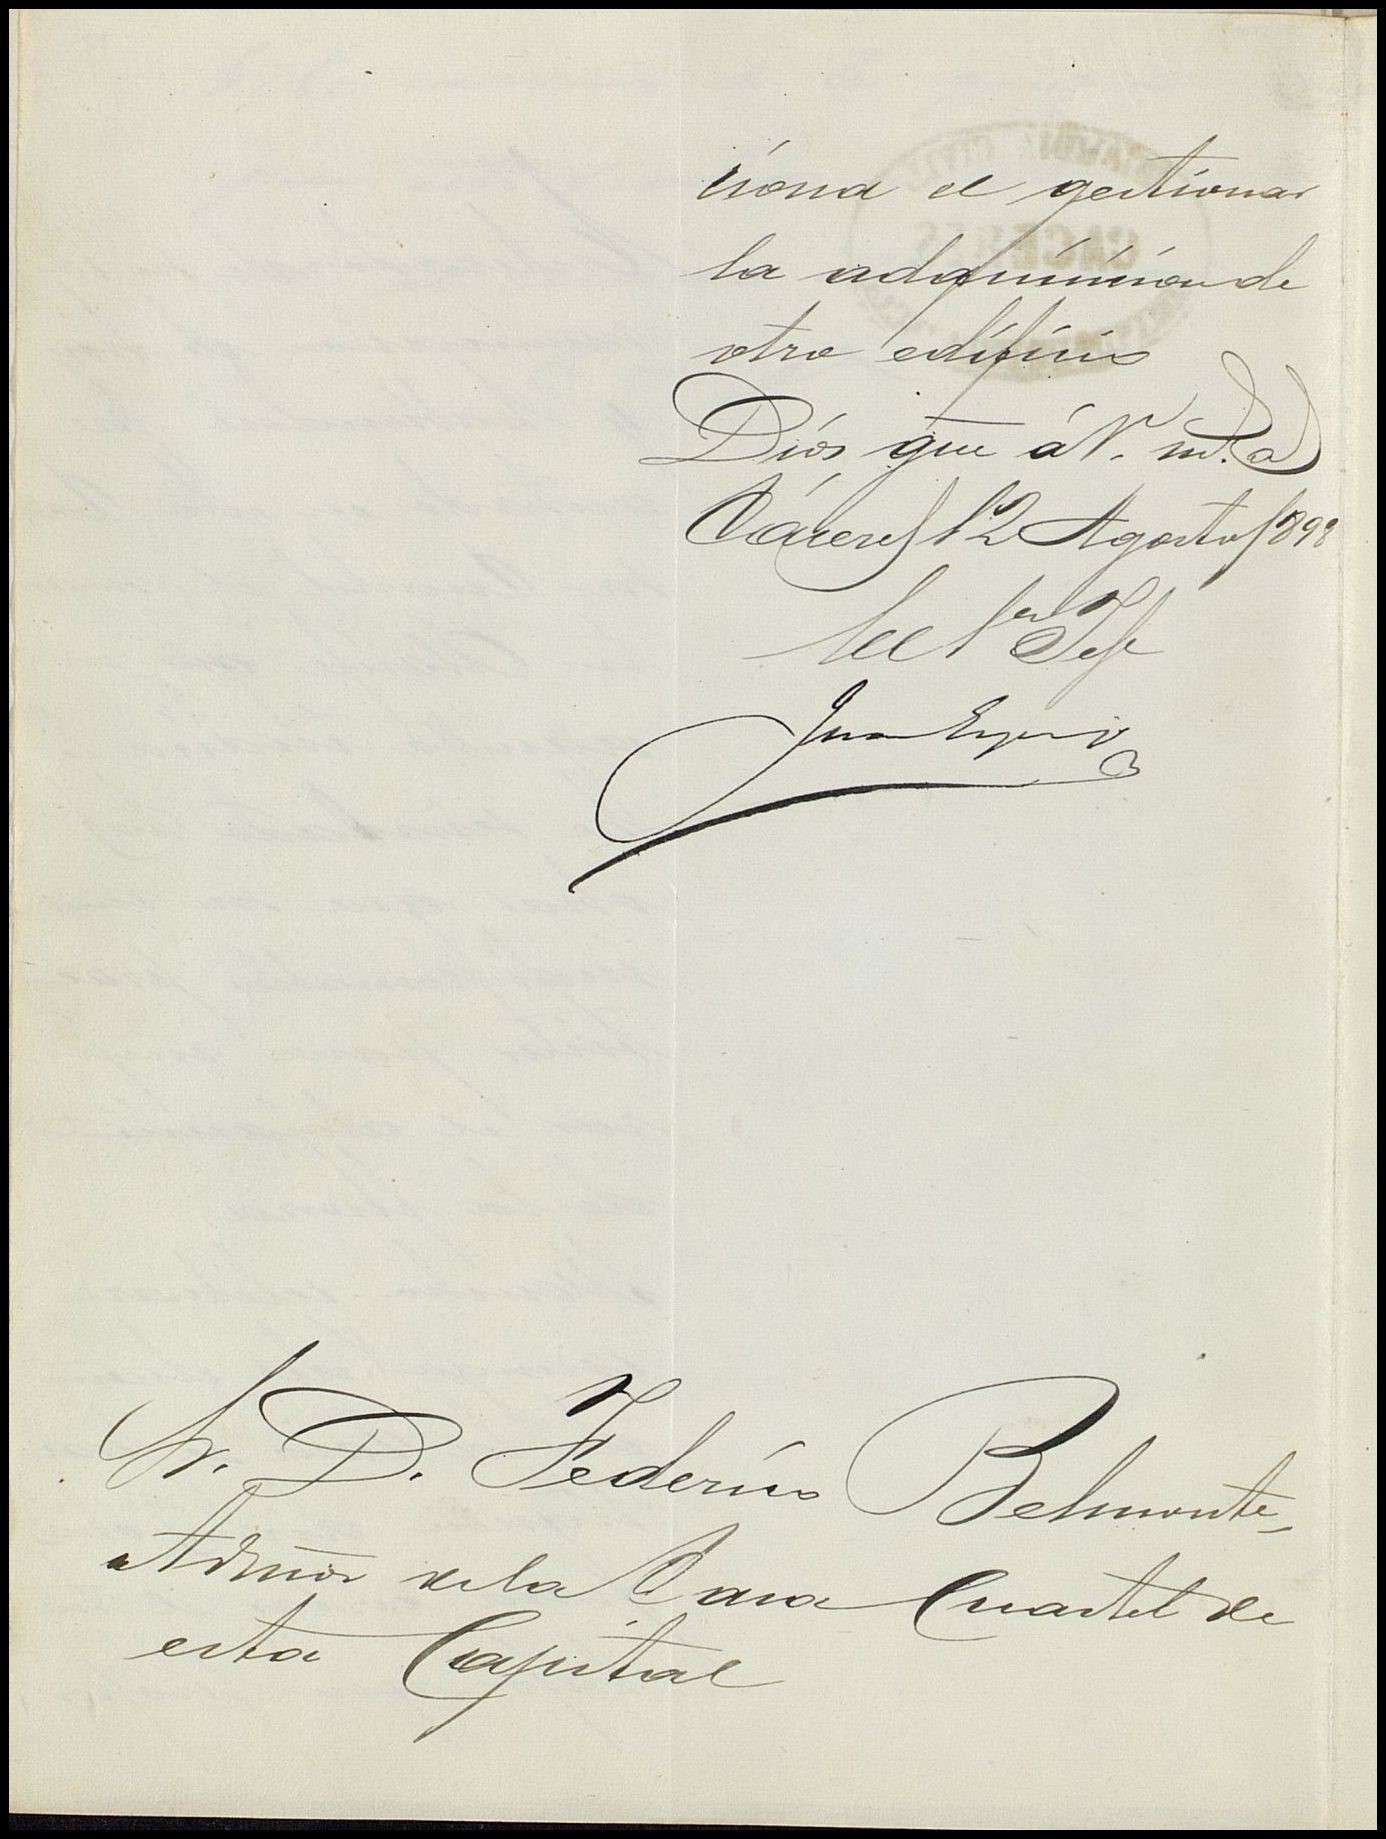 ciona el gestionar
la adquisicion de
otro edificio
Dios gue á V. m. a
Cáceres 12 Agosto 1898
El 1er Jefe
Juan
Sr. D. Federico Belmonte,
Admor de la Casa Cuartel de
esta Capital
CACERES